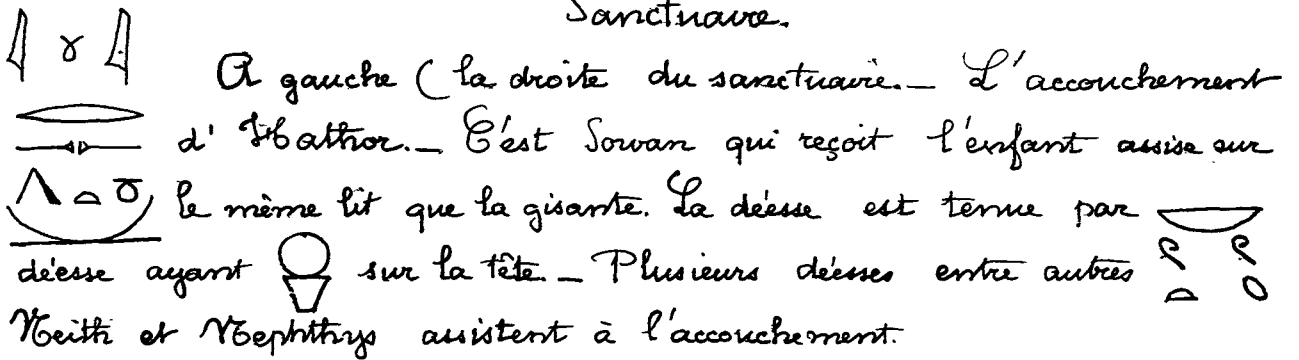 Sanctuaire.
A gauche ( la droite du sanctuaire. _ L'accouchement
d'Hathor. _ C'est Sowan qui reçoit l'enfant assise sur
le même lit que la gisante. La déesse est tenue par
déesse ayant sur la tête. _ Plusieurs déesses entre autres
Neith et Nephthys assistent à l'accouchement.